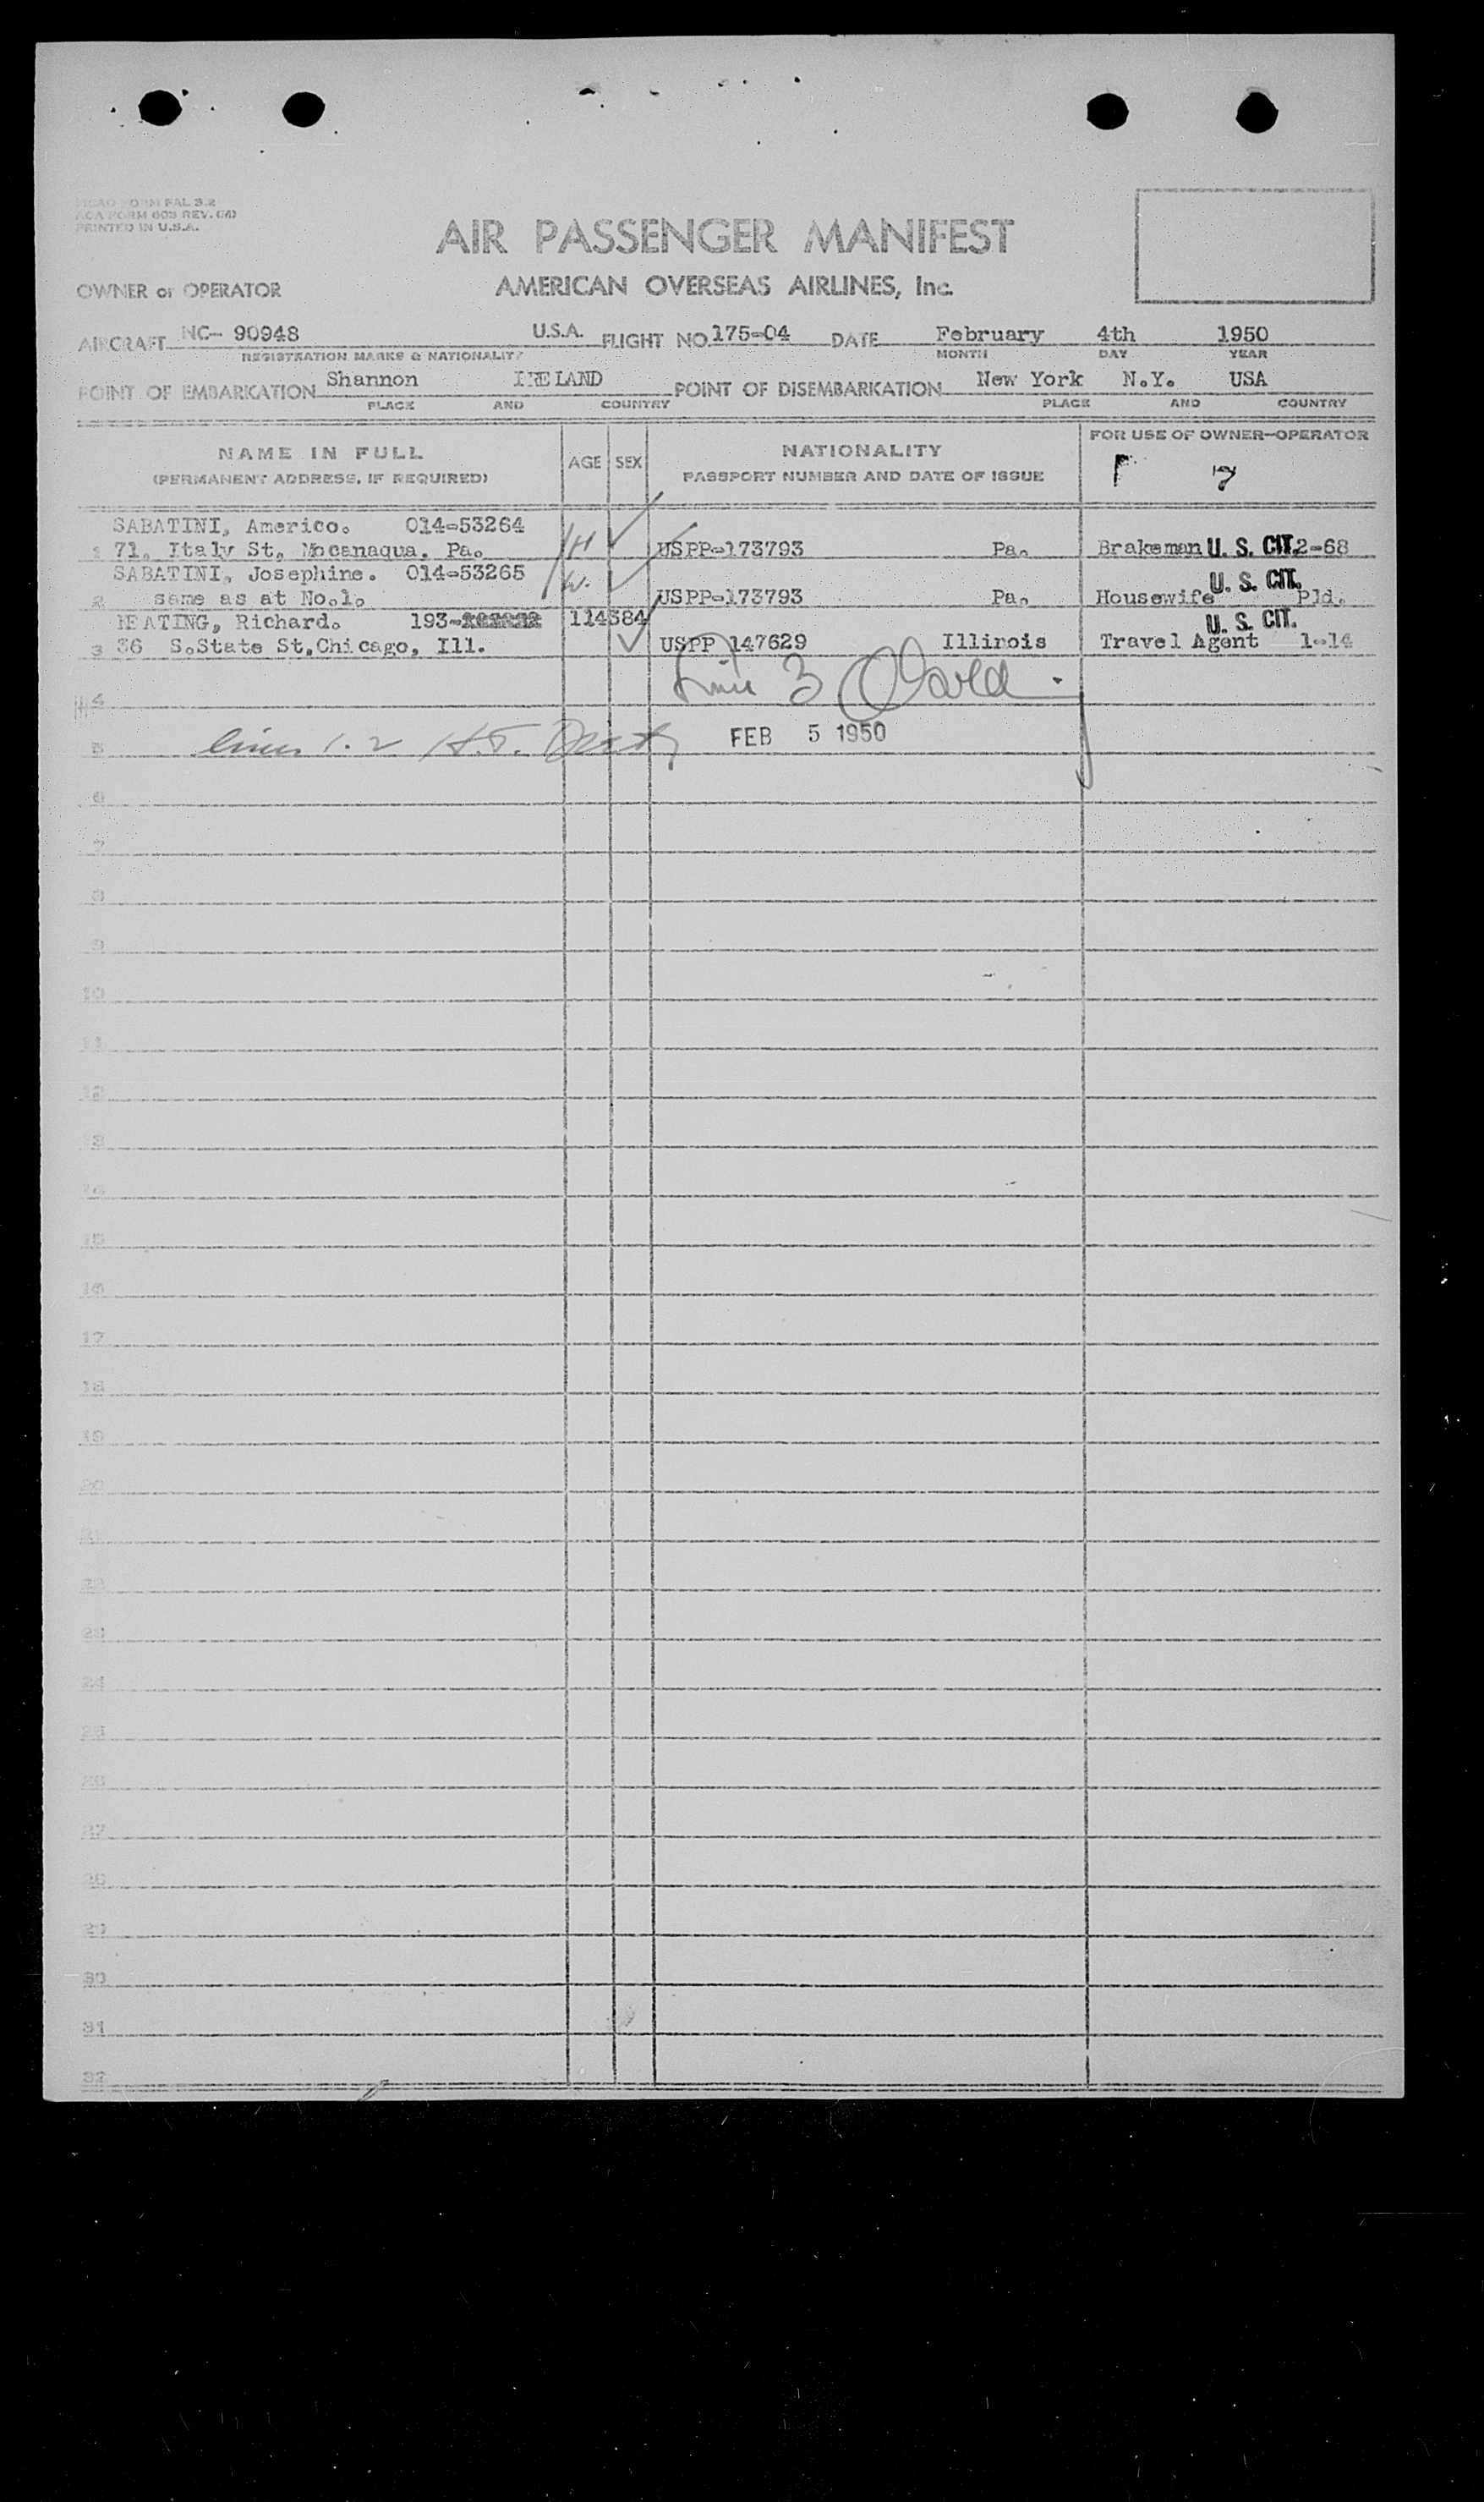 ICAO FORM FAL 3.2
PRINTED IN U.S.A.
AIR PASSENGER MANIFEST
OWNER or OPERATOR AMERICAN OVERSEAS AIRLINES, Inc.
AIRCRAFT NC- 90948 U.S.A. FLIGHT NO. 175-04 DATE February 4th 1950
REGISTRATION MARKS & NATIONALITY MONTH DAY YEAR
POINT OF EMBARKATION Shannon IRELAND POINT OF DISEMBARKATION New York N.Y. USA
PLACE AND COUNTRY PLACE AND COUNTRY
NAME IN FULL AGE SEX NATIONALITY FOR USE OF OWNER-OPERATOR
(PERMANENT ADDRESS, IF REQUIRED) PASSPORT NUMBER AND DATE OF ISSUE
7
SABATINI, Americo. 014-53264
1 71, Italy St, Mocanaqua. Pa. H USPP-173793 Pa. Brakeman U. S. CIT. 2-68
SABATINI, Josephine. 014-53265 W. U. S. CIT.
2 same as at No.1. USPP-173793 Pa. Housewife Pld.
KEATING, Richard. 193- 114384 U. S. CIT.
3 36 S.State St,Chicago, Ill. USPP 147629 Illinois Travel Agent 1-14
4 Line 3
5 lines 1-2 H.T. FEB 5 1950
6
7
8
9
10
11
12
13
14
15
16
17
18
19
20
21
22
23
24
25
26
27
28
29
30
31
32